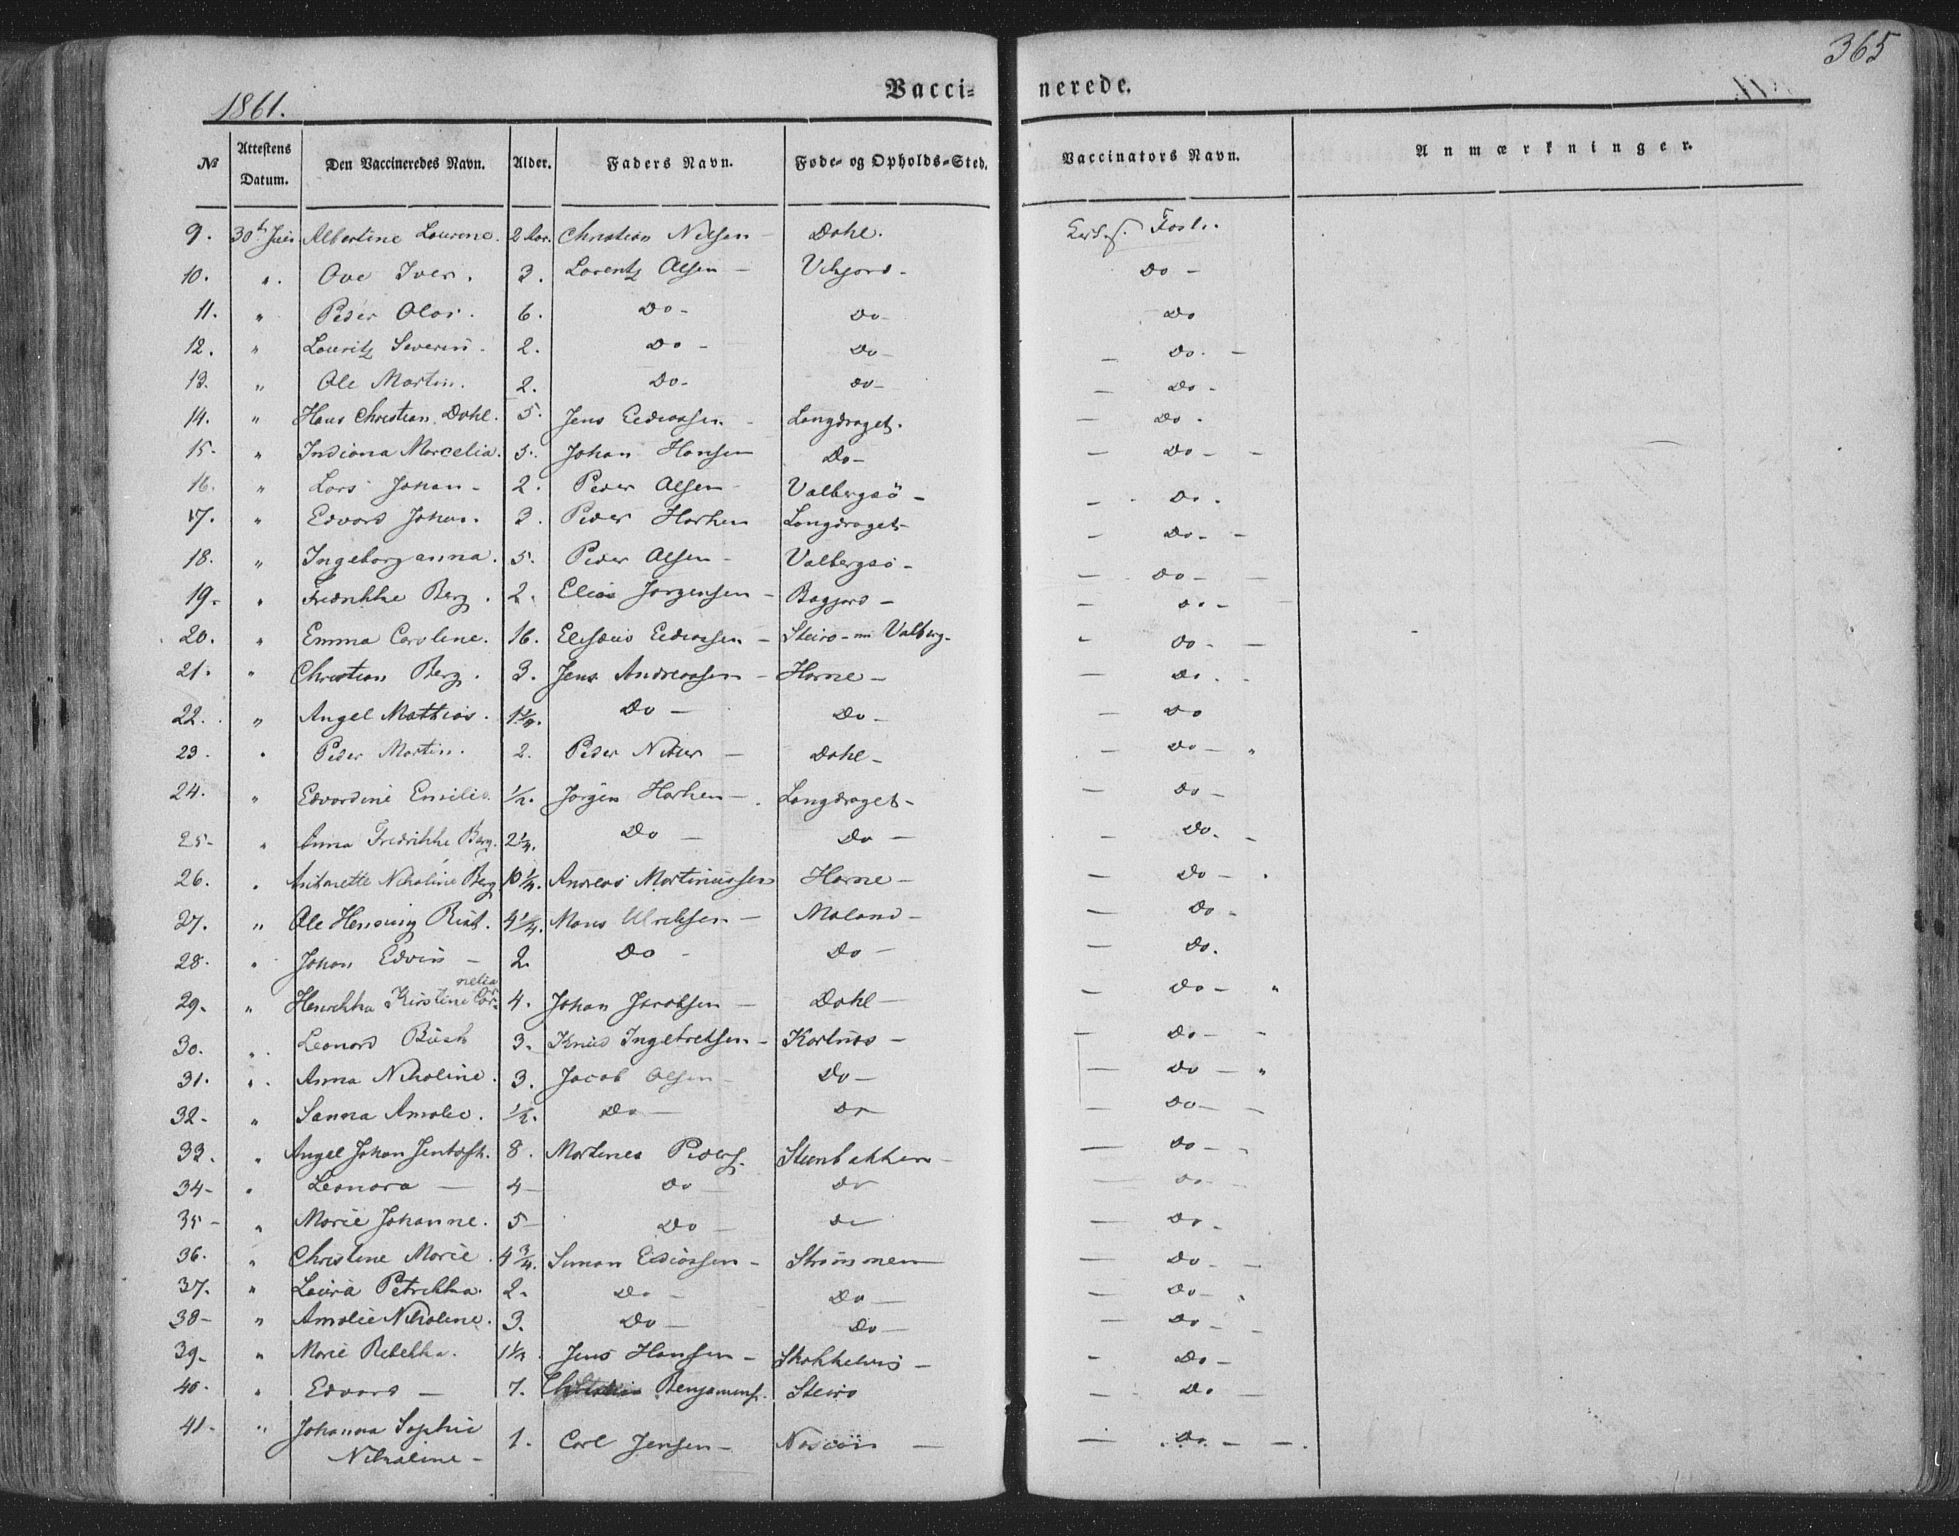 365
1861.
Vacci- nerede.
No Attestens Datum. Den Vaccineredes Navn. Alder. Faders Navn. Føde- og Opholds-Sted. Vaccinators Navn. Anmærkninger.
9. 30th Juni Albertine Laurene. 2 Aar. Christian Nilsen - Dahl.
10. " Ove Iver. 3. Lorentz Olsen - Do -
11. " Peder Olai. 6. Do - Do - Do
12. " Lauritz Severin. 2. Do - Do - - Do. -
13. " Ole Martin. 2. Do - Do - - Do -
14. " Hans Christian Dahl. 5. Jens Langdraget. - Do.
15. " Indiana Marcelia. 5. Johan Hansen Do - - Do - -
16. " Lars Johan - 2. Peder Olsen - Valbergsö - - Do.
17. " Edvard Johan. 3. Peder Langdraget - - Do - -
18. " Ingeborg Anna. 5. Peder Olsen - Valbergsö - - Do - -
19. " Fredrikke Berg. 2. Elias Jørgensen - - Do -
20. " Emma Caroline. 16. Steiro - Valberg - - Do - -
21. " Christian Berg. 3. Jens Andreassen - Horne - - Do. -
22. " Angel Mathias. 1¼. Do - Do - - Do
23. " Peder Martin. 2. Peder Dahl - - Do - "
24. " Edvardine Emilie. ½. Jørgen - Langdraget - - Do -
25 - " Anna Fredrikke Berg. 2¼. Do - Do - - Do. -
26. " Antonette Nikoline Berg 10¼. Andreas Martinussen Horne - - Do -
27. " Ole Henning Rist. 4¼. Mons Ulriksen - Moland - - Do -
28. " Johan Edvin - 2. Do - Do - - Do.
29. " Henrikka Kirstine Cornelia 4. Johan Jacobsen - Dahl - - Do - "
30. " Leonard Busch 3. Knud Ingebretsen - Kartnæs - - Do - -
31. " Anna Nikoline. 3. Jacob Olsen - Do - - Do - "
32. " Sanna Amalie. ½. Do - Do - Do - -
33. " Angel Johan Jentoft. 8. Martines Peders. Steenbakken - - Do - -
34 - " Leonora - 4 - Do - Do - Do -
35 - " Marie Johanne. 5 - Do - Do - Do -
36. " Christine Marie. 4¾. Simon - Strømmen - Do - -
37. " Laura Petrikka. 2. Do - Do - - Do -
38 - " Amalie Nikoline. 3. Do - Do - - Do - -
39. " Marie Rebekka. 1¼. Jens Hansen - - Do -
40. " Edvard - 7. Benjamins. Steiro - Do -
41 - " Johanna Sophie 1. Carl Jensen - - Do - -
Nikoline -